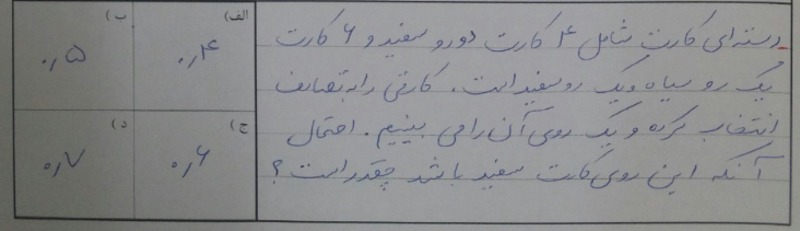 دسته‌ای کارت شامل ۴ کارت دورو سفید و ۶ کارت
یک رو سیاه و یک رو سفید است. کارتی را به تصادف
انتخاب کرده و یک روی آن را می بینیم. احتمال
آنکه این روی کارت سفید باشد چقدر است؟
الف) ۰٫۴
ب) ۰٫۵
ج) ۰٫۶
د) ۰٫۷